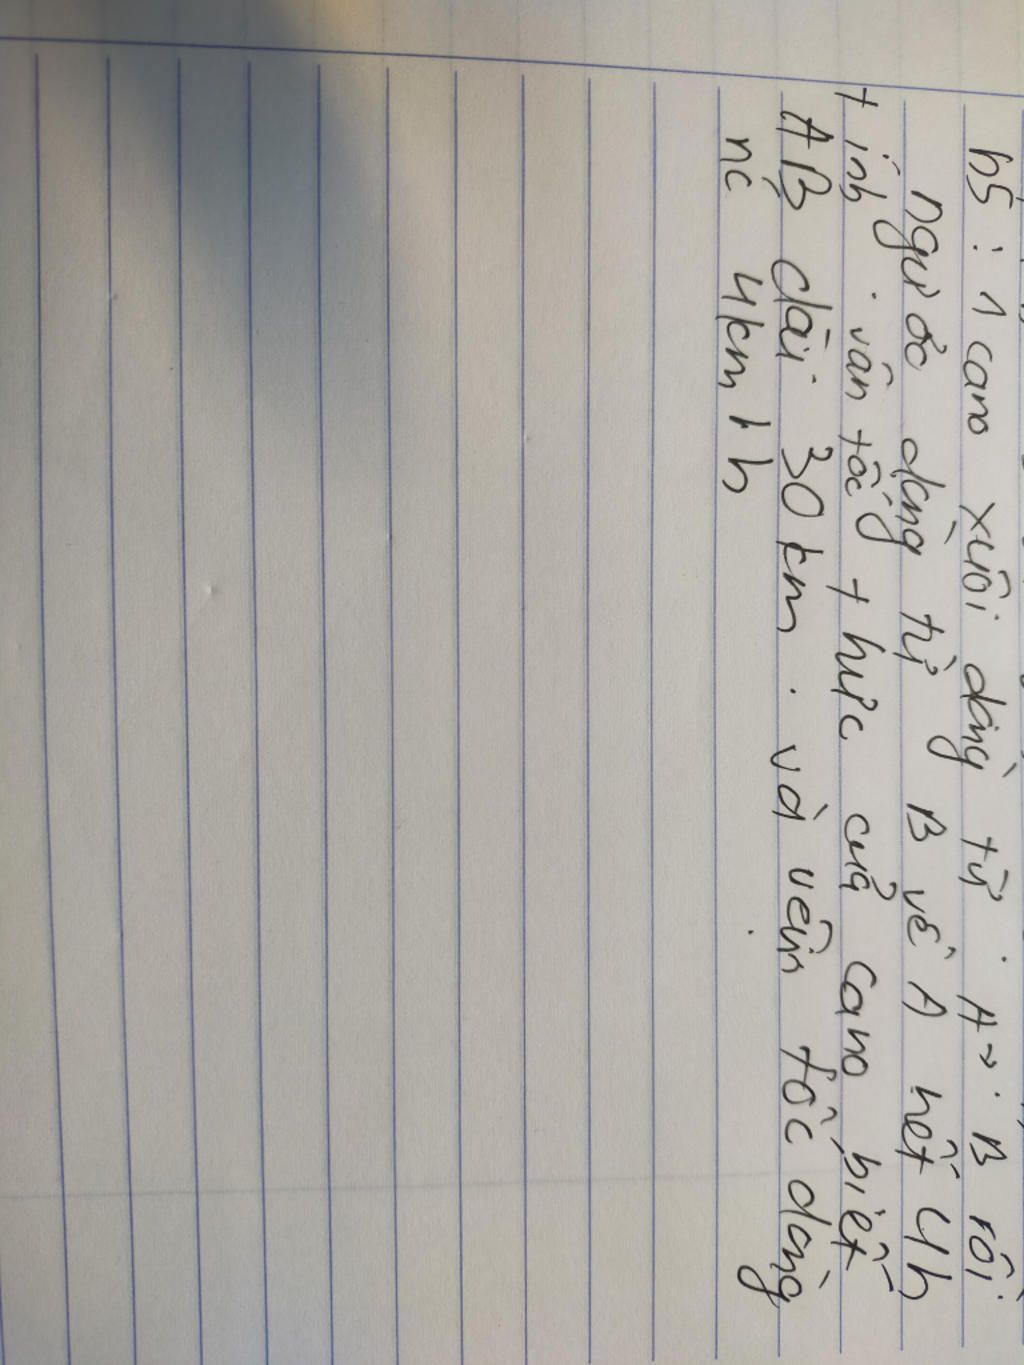 b5 : 1 cano xuôi dòng từ A → B rồi
ngược dòng từ B về A hết 4h
tính vận tốc thực của cano biết
AB dài 30km. và vận tốc dòng
nc 4km/h